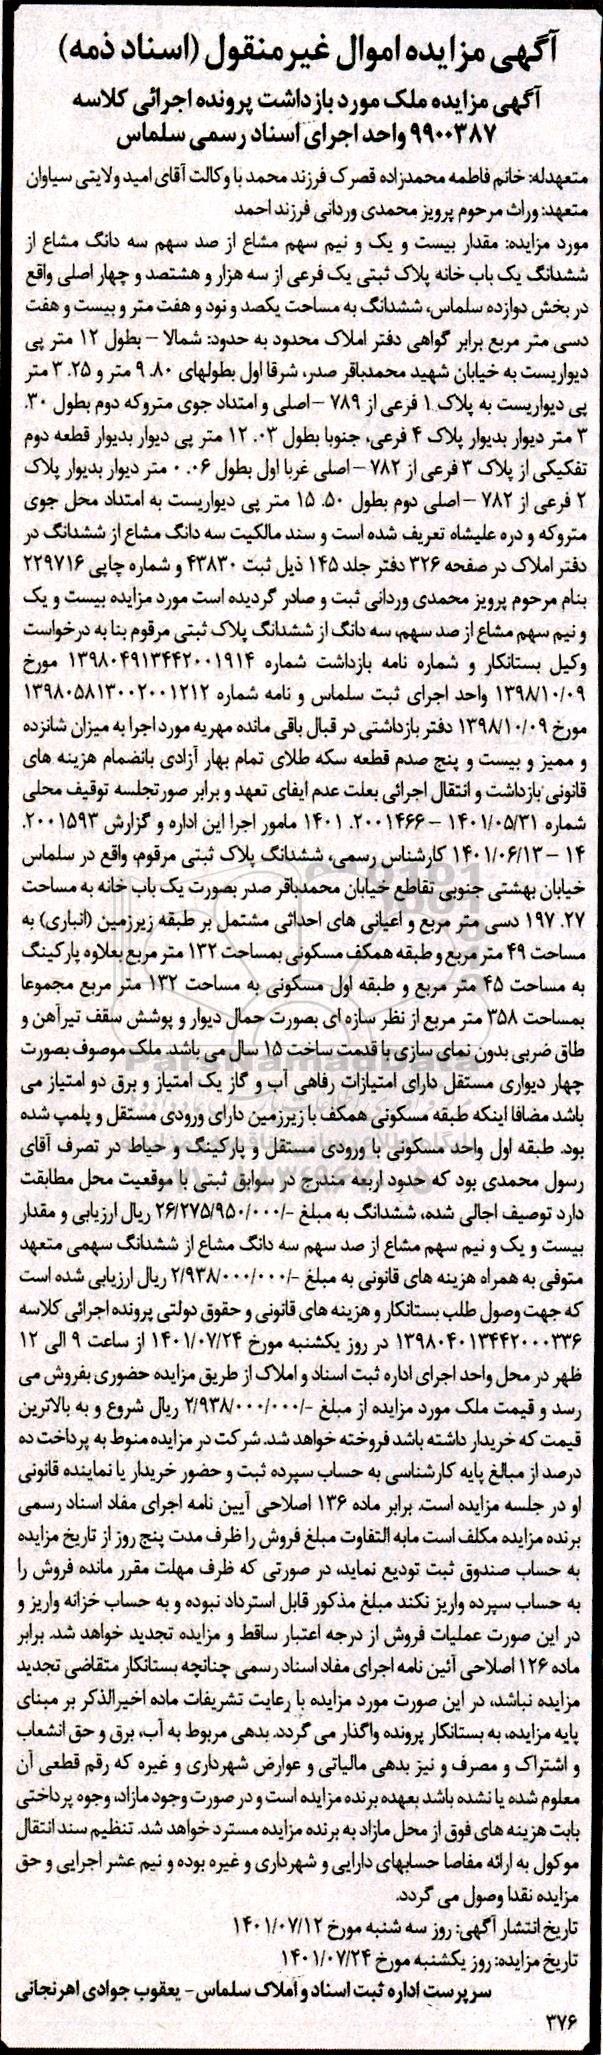 آگهی مزایده اموال غیرمنقول (اسناد ذمه)
آگهی مزایده ملک مورد بازداشت پرونده اجرائی کلاسه
۹۹۰۰۳۸۷ واحد اجرای اسناد رسمی سلماس
متعهدله: خانم فاطمه محمدزاده قصرک فرزند محمد با وکالت آقای امید ولایتی سیاوان
متعهد: وراث مرحوم پرویز محمدی وردانی فرزند احمد
مورد مزایده: مقدار بیست و یک و نیم سهم مشاع از صد سهم سه دانگ مشاع از
ششدانگ یک باب خانه پلاک ثبتی یک فرعی از سه هزار و هشتصد و چهار اصلی واقع
در بخش دوازده سلماس، ششدانگ به مساحت یکصد و نود و هفت متر و بیست و هفت
دسی متر مربع برابر گواهی دفتر املاک محدود به حدود: شمالا – بطول ۱۲ متر پی
دیواریست به خیابان شهید محمدباقر صدر، شرقا اول بطولهای ۸۰. ۹ متر و ۲۵. ۳ متر
پی دیواریست به پلاک ۱ فرعی از ۷۸۹ –اصلی و امتداد جوی متروکه دوم بطول ۳۰.
۳ متر دیوار بدیوار پلاک ۴ فرعی، جنوبا بطول ۰۳. ۱۲ متر پی دیوار بدیوار قطعه دوم
تفکیکی از پلاک ۳ فرعی از ۷۸۲ –اصلی غربا اول بطول ۰۶. ۰ متر دیوار بدیوار پلاک
۲ فرعی از ۷۸۲ –اصلی دوم بطول ۵۰. ۱۵ متر پی دیواریست به امتداد محل جوی
متروکه و دره علیشاه تعریف شده است و سند مالکیت سه دانگ مشاع از ششدانگ در
دفتر املاک در صفحه ۳۲۶ دفتر جلد ۱۴۵ ذیل ثبت ۴۳۸۳۰ و شماره چاپی ۲۲۹۷۱۶
بنام مرحوم پرویز محمدی وردانی ثبت و صادر گردیده است مورد مزایده بیست و یک
و نیم سهم مشاع از صد سهم، سه دانگ از ششدانگ پلاک ثبتی مرقوم بنا به درخواست
وکیل بستانکار و شماره نامه بازداشت شماره ۱۳۹۸۰۴۹۱۳۴۴۲۰۰۱۹۱۴ مورخ
۱۳۹۸/۱۰/۰۹ واحد اجرای ثبت سلماس و نامه شماره ۱۳۹۸۰۵۸۱۳۰۰۲۰۰۱۲۱۲
مورخ ۱۳۹۸/۱۰/۰۹ دفتر بازداشتی در قبال باقی مانده مهریه مورد اجرا به میزان شانزده
و ممیز و بیست و پنج صدم قطعه سکه طلای تمام بهار آزادی بانضمام هزینه های
قانونی بازداشت و انتقال اجرائی بعلت عدم ایفای تعهد و برابر صورتجلسه توقیف محلی
شماره ۱۴۰۱/۰۵/۳۱ – ۲۰۰۱۴۶۶. ۱۴۰۱ مامور اجرا این اداره و گزارش ۲۰۰۱۵۹۳.
۱۴ – ۱۴۰۱/۰۶/۱۳ کارشناس رسمی، ششدانگ پلاک ثبتی مرقوم، واقع در سلماس
خیابان بهشتی جنوبی تقاطع خیابان محمدباقر صدر بصورت یک باب خانه به مساحت
۲۷. ۱۹۷ دسی متر مربع و اعیانی های احداثی مشتمل بر طبقه زیرزمین (انباری) به
مساحت ۴۹ متر مربع و طبقه همکف مسکونی بمساحت ۱۳۲ متر مربع بعلاوه پارکینگ
به مساحت ۴۵ متر مربع و طبقه اول مسکونی به مساحت ۱۳۲ متر مربع مجموعا
بمساحت ۳۵۸ متر مربع از نظر سازه ای بصورت حمال دیوار و پوشش سقف تیرآهن و
طاق ضربی بدون نمای سازی با قدمت ساخت ۱۵ سال می باشد. ملک موصوف بصورت
چهار دیواری مستقل دارای امتیازات رفاهی آب و گاز یک امتیاز و برق دو امتیاز می
باشد مضافا اینکه طبقه مسکونی همکف با زیرزمین دارای ورودی مستقل و پلمپ شده
بود. طبقه اول واحد مسکونی با ورودی مستقل و پارکینگ و حیاط در تصرف آقای
رسول محمدی بود که حدود اربعه مندرج در سوابق ثبتی با موقعیت محل مطابقت
دارد توصیف اجالی شده، ششدانگ به مبلغ -/۲۶/۲۷۵/۹۵۰/۰۰۰ ریال ارزیابی و مقدار
بیست و یک و نیم سهم مشاع از صد سهم سه دانگ مشاع از ششدانگ سهمی متعهد
متوفی به همراه هزینه های قانونی به مبلغ -/۲/۹۳۸/۰۰۰/۰۰۰ ریال ارزیابی شده است
که جهت وصول طلب بستانکار و هزینه های قانونی و حقوق دولتی پرونده اجرائی کلاسه
۱۳۹۸۰۴۰۱۳۴۴۲۰۰۰۳۳۶ در روز یکشنبه مورخ ۱۴۰۱/۰۷/۲۴ از ساعت ۹ الی ۱۲
ظهر در محل واحد اجرای اداره ثبت اسناد و املاک از طریق مزایده حضوری بفروش می
رسد و قیمت ملک مورد مزایده از مبلغ -/۲/۹۳۸/۰۰۰/۰۰۰ ریال شروع و به بالاترین
قیمت که خریدار داشته باشد فروخته خواهد شد. شرکت در مزایده منوط به پرداخت ده
درصد از مبالغ پایه کارشناسی به حساب سپرده ثبت و حضور خریدار یا نماینده قانونی
او در جلسه مزایده است. برابر ماده ۱۳۶ اصلاحی آیین نامه اجرای مفاد اسناد رسمی
برنده مزایده مکلف است مابه التفاوت مبلغ فروش را ظرف مدت پنج روز از تاریخ مزایده
به حساب صندوق ثبت تودیع نماید، در صورتی که ظرف مهلت مقرر مانده فروش را
به حساب سپرده واریز نکند مبلغ مذکور قابل استرداد نبوده و به حساب خزانه واریز و
در این صورت عملیات فروش از درجه اعتبار ساقط و مزایده تجدید خواهد شد. برابر
ماده ۱۲۶ اصلاحی آئین نامه اجرای مفاد اسناد رسمی چنانچه بستانکار متقاضی تجدید
مزایده نباشد، در این صورت مورد مزایده با رعایت تشریفات ماده اخیرالذکر بر مبنای
پایه مزایده، به بستانکار پرونده واگذار می گردد. بدهی مربوط به آب، برق و حق انشعاب
و اشتراک و مصرف و نیز بدهی مالیاتی و عوارض شهرداری و غیره که رقم قطعی آن
معلوم شده یا نشده باشد بعهده برنده مزایده است و در صورت وجود مازاد، وجوه پرداختی
بابت هزینه های فوق از محل مازاد به برنده مزایده مسترد خواهد شد. تنظیم سند انتقال
موکول به ارائه مفاصا حسابهای دارایی و شهرداری و غیره بوده و نیم عشر اجرایی و حق
مزایده نقدا وصول می گردد.
تاریخ انتشار آگهی: روز سه شنبه مورخ ۱۴۰۱/۰۷/۱۲
تاریخ مزایده: روز یکشنبه مورخ ۱۴۰۱/۰۷/۲۴
سرپرست اداره ثبت اسناد و املاک سلماس- یعقوب جوادی اهرنجانی
۳۷۶